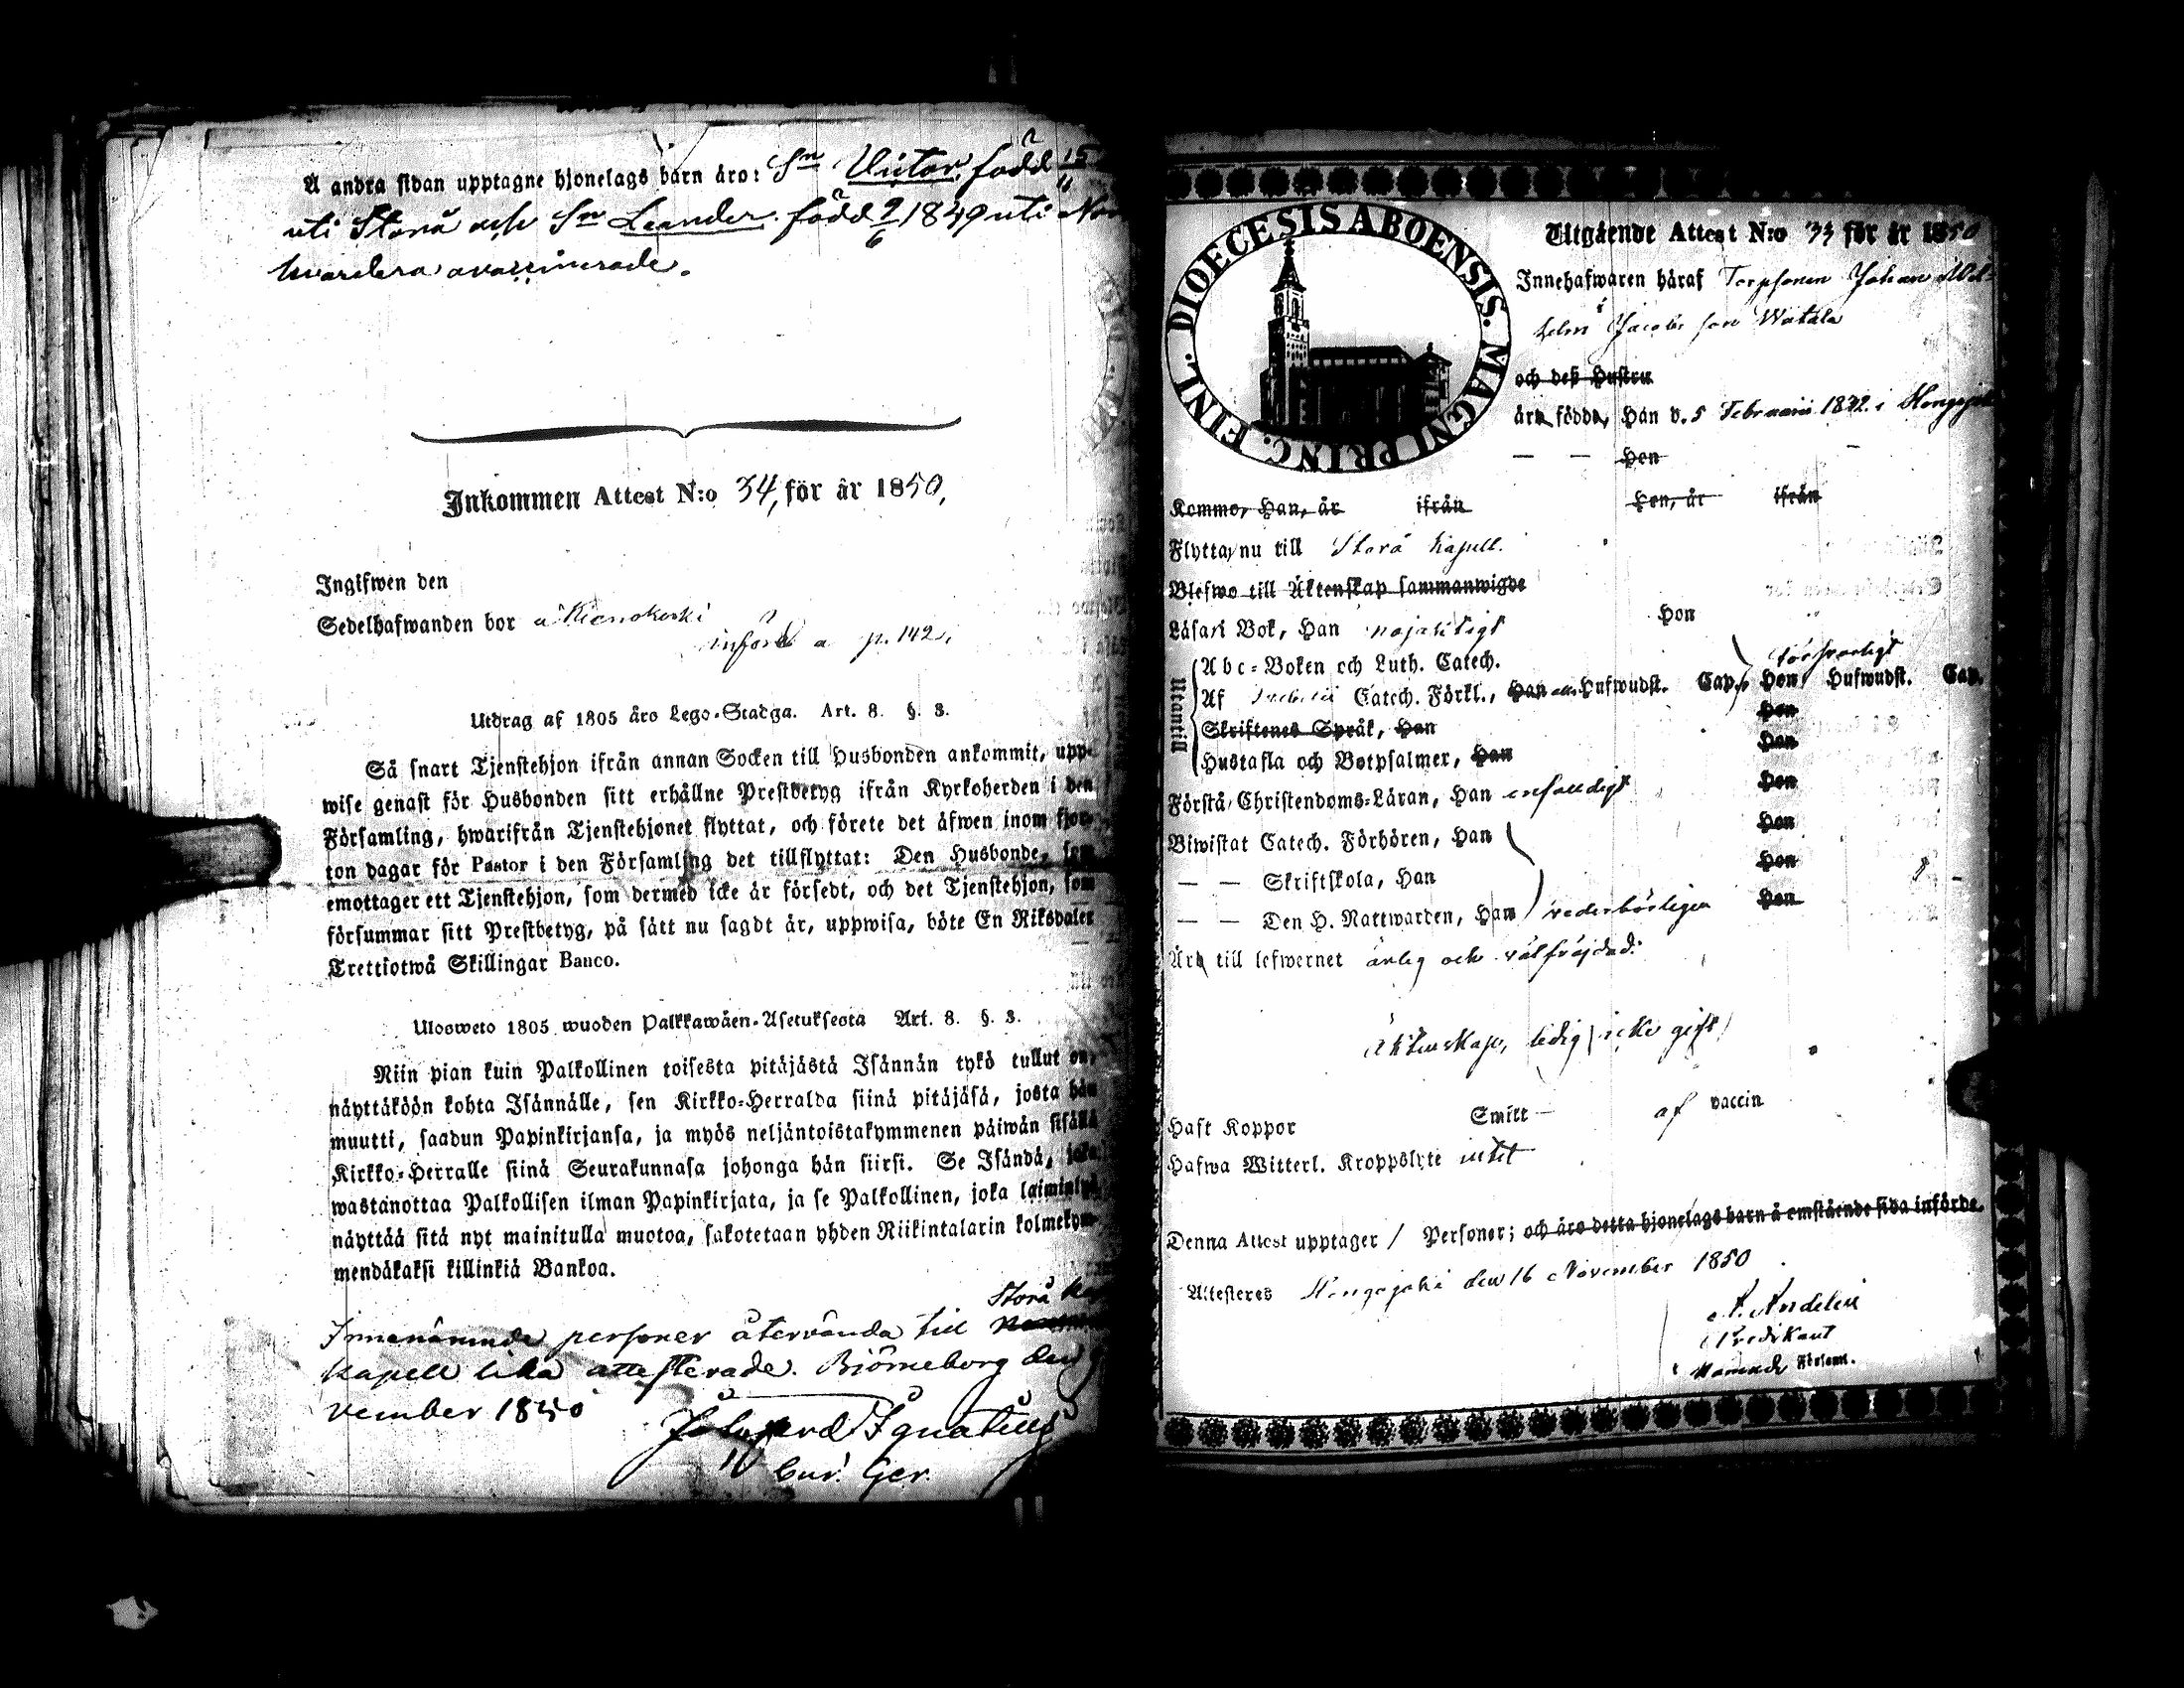 Å andra sidan upptagne hjonelags barn äro: Sn Victor, född 15
uti Storå och Sn Leander född 9/6 1849 uti
hvardera ovaccinerade.
Inkommen Attest N:o 34, för år 1850,
Ingifwen den
Sedelhafwanden bor å
införd å p. 142,
Utdrag af 1805 åro Lego-Stadga. Art. 8. §. 3.
Så snart Tjenstehjon ifrån annan Socken till Husbonden ankommit, upp-
wise genast för Husbonden sitt erhållne Prestbetyg ifrån Kyrkoherden i den
Församling, hwarifrån Tjenstehjonet flyttat, och förete det äfwen inom fjor-
ton dagar för Pastor i den Församling det tillflyttat: Den Husbonde, som
emottager ett Tjenstehjon, som dermed icke är försedt, och det Tjenstehjon, som
försummar sitt Prestbetyg, på sätt nu sagdt är, uppwisa, böte En Riksdaler
Trettiotwå Skillingar Banco.
Ulosweto 1805 wuoden Palkkawäen-Asetuksesta Art. 8. §. 3.
Niin pian kuin Palkollinen toisesta pitäjästä Isännän tykö tullut on,
näyttäköön kohta Isännälle, sen Kirkko-Herralda siinä pitäjäsä, josta hän
muutti, saadun Papinkirjansa, ja myös neljäntoistakymmenen päiwän sisällä
Kirkko-Herralle siinä Seurakunnasa johonga hän siirsi. Se Isändä, joka
wastanottaa Palkollisen ilman Papinkirjata, ja se Palkollinen, joka laiminlyö
näyttää sitä nyt mainitulla muotoa, sakotetaan yhden Riikintalarin kolmekym-
mendäkaksi killinkiä Bankoa.
Storå
Innenämnde personer återvända till
Kapell lika attesterade. Björneborg den
vember 1850
Ignatius
DIOECESIS ABOENSIS. MAGNI PRINC. FINL.
Utgående Attest N:o 33 för år 1850
Innehafwaren häraf Torpsonen Johan Wil-
helm Jacobs son
och deß Hustru
äro födde, Han d. 5 Februarii 1832 i
— — Hon
Kommo, Han, år ifrån Hon, år ifrån
Flytta nu till Storå Kapell.
Blefwo till Äktenskap sammanwigde
Läsa i Bok, Han nöjaktigt Hon
Utantill
Abc-Boken och Luth. Catech. försvarligt
Af Catech. Förkl., Han Hufwudst. Cap. Hon Hufwudst. Cap.
Skriftenes Språk, Han Hon
Hustafla och Botpsalmer, Han Hon
Förstå Christendoms-Läran, Han enfaldigt Hon
Biwistat Catech. Förhören, Han Hon
— — Skriftskola, Han Hon
— — Den H. Nattwarden, Han vederbörligen Hon
Äro till lefwernet ärlig och välfräjdad.
Äktenskap, ledig (icke gift)
Haft Koppor Smitt — af vaccin
Hafwa Witterl. Kroppslyte intet
Denna Attest upptager 1 Personer; och äro detta hjonelags barn å omstående sida införde.
Attesteras den 16 November 1850
A. Andelin
Predikant
Församl.